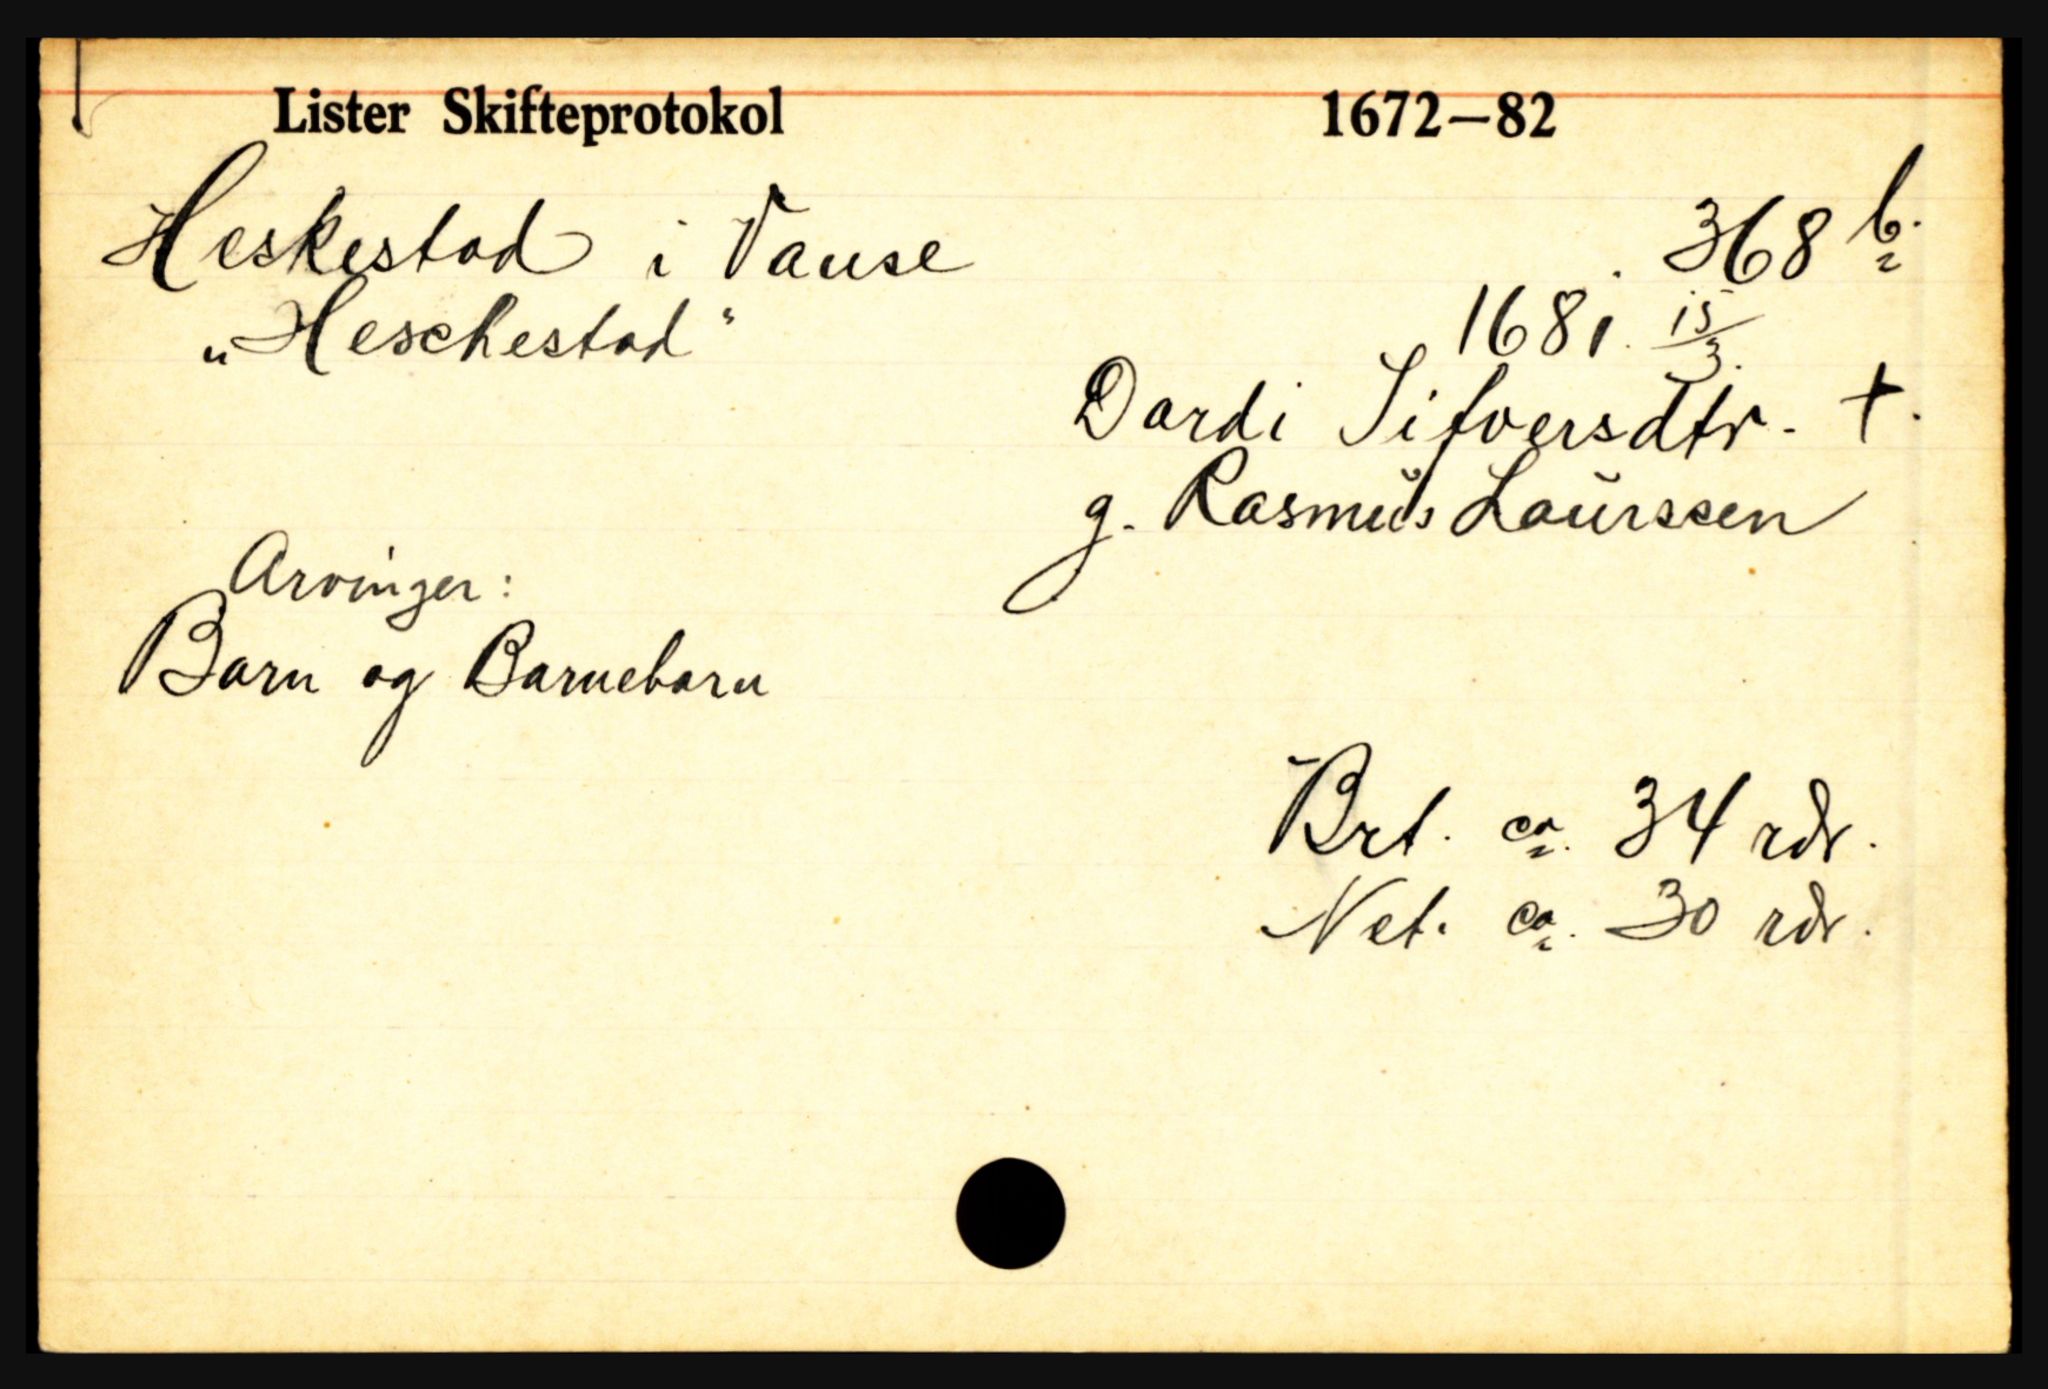 Lister Skifteprotokol 1672—82
Heskestad i Vanse 368 b.
„Heschestad“ 1681. 15/3.
Dardi Sifversdtr. †.
g. Rasmus Laurssen
Arvinger:
Barn og Barnebarn
Brt. ca. 34 rdr.
Net. ca. 30 rdr.